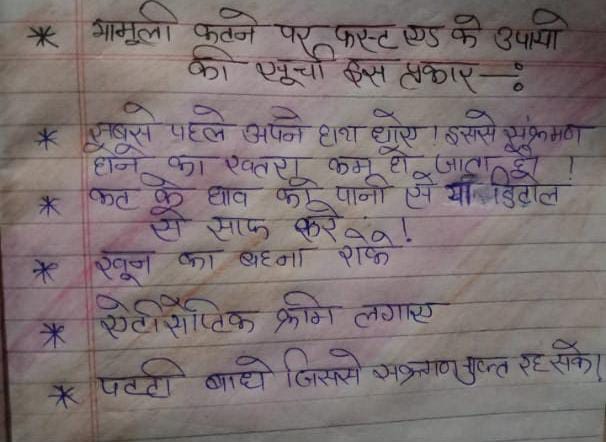 * मामुली कटने पर फस्ट एड के उपायो
की सूची इस प्रकार —:
* सबसे पहले अपने हाथ धोए। इससे संक्रमण
होने का खतरा कम हो जाता है।
* कट के घाव को पानी से या डिटोल
से साफ करे!
* खून का बहना रोके
* एंटीसैप्टिक क्रीम लगाए
* पटटी बाधे जिससे सक्रमण मुक्त रह सके।